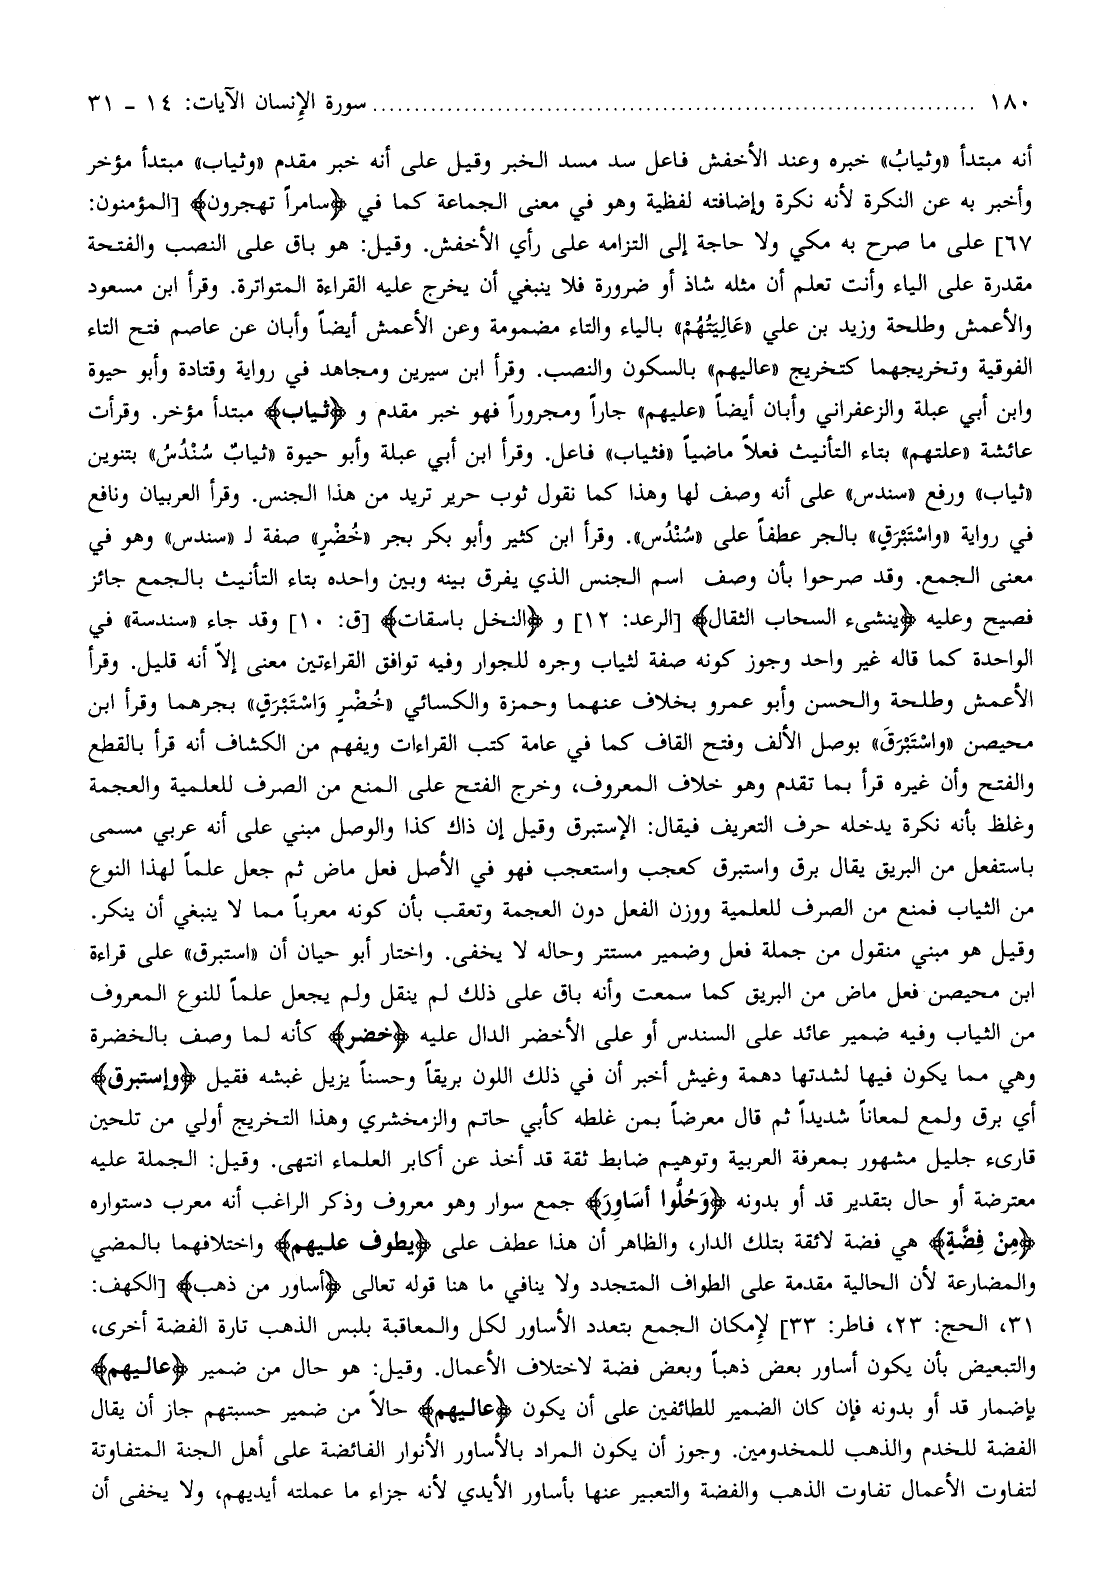 ١٨٠ ........................................................................ سورة الإنسان الآيات: ١٤ - ٣١
أنه مبتدأ «وثيابُ» خبره وعند الأخفش فاعل سد مسد الخبر وقيل على أنه خبر مقدم «وثياب» مبتدأ مؤخر
وأخبر به عن النكرة لأنه نكرة وإضافته لفظية وهو في معنى الجماعة كما في ﴿سامراً تهجرون﴾ [المؤمنون:
٦٧] على ما صرح به مكي ولا حاجة إلى التزامه على رأي الأخفش. وقيل: هو باق على النصب والفتحة
مقدرة على الياء وأنت تعلم أن مثله شاذ أو ضرورة فلا ينبغي أن يخرج عليه القراءة المتواترة. وقرأ ابن مسعود
والأعمش وطلحة وزيد بن علي «عَالِيَتُهُمْ» بالياء والتاء مضمومة وعن الأعمش أيضاً وأبان عن عاصم فتح التاء
الفوقية وتخريجهما كتخريج «عاليهم» بالسكون والنصب. وقرأ ابن سيرين ومجاهد في رواية وقتادة وأبو حيوة
وابن أبي عبلة والزعفراني وأبان أيضاً «عليهم» جاراً ومجروراً فهو خبر مقدم و ﴿ثياب﴾ مبتدأ مؤخر. وقرأت
عائشة «علتهم» بتاء التأنيث فعلاً ماضياً «فثياب» فاعل. وقرأ ابن أبي عبلة وأبو حيوة «ثيابٌ سُنْدُسٌ» بتنوين
«ثياب» ورفع «سندس» على أنه وصف لها وهذا كما نقول ثوب حرير تريد من هذا الجنس. وقرأ العربيان ونافع
في رواية «واسْتَبْرَقٍ» بالجر عطفاً على «سُنْدُس». وقرأ ابن كثير وأبو بكر بجر «خُضْرٍ» صفة لـ «سندس» وهو في
معنى الجمع. وقد صرحوا بأن وصف اسم الجنس الذي يفرق بينه وبين واحده بتاء التأنيث بالجمع جائز
فصيح وعليه ﴿ينشىء السحاب الثقال﴾ [الرعد: ١٢] و ﴿النخل باسقات﴾ [ق: ١٠] وقد جاء «سندسة» في
الواحدة كما قاله غير واحد وجوز كونه صفة لثياب وجره للجوار وفيه توافق القراءتين معنى إلاّ أنه قليل. وقرأ
الأعمش وطلحة والحسن وأبو عمرو بخلاف عنهما وحمزة والكسائي «خُضْرٍ وَاسْتَبْرَقٍ» بجرهما وقرأ ابن
محيصن «واسْتَبْرَقَ» بوصل الألف وفتح القاف كما في عامة كتب القراءات ويفهم من الكشاف أنه قرأ بالقطع
والفتح وأن غيره قرأ بما تقدم وهو خلاف المعروف، وخرج الفتح على المنع من الصرف للعلمية والعجمة
وغلظ بأنه نكرة يدخله حرف التعريف فيقال: الإستبرق وقيل إن ذاك كذا والوصل مبني على أنه عربي مسمى
باستفعل من البريق يقال برق واستبرق كعجب واستعجب فهو في الأصل فعل ماض ثم جعل علماً لهذا النوع
من الثياب فمنع من الصرف للعلمية ووزن الفعل دون العجمة وتعقب بأن كونه معرباً مما لا ينبغي أن ينكر.
وقيل هو مبني منقول من جملة فعل وضمير مستتر وحاله لا يخفى. واختار أبو حيان أن «استبرق» على قراءة
ابن محيصن فعل ماض من البريق كما سمعت وأنه باق على ذلك لم ينقل ولم يجعل علماً للنوع المعروف
من الثياب وفيه ضمير عائد على السندس أو على الأخضر الدال عليه ﴿خضر﴾ كأنه لما وصف بالخضرة
وهي مما يكون فيها لشدتها دهمة وغبش أخبر أن في ذلك اللون بريقاً وحسناً يزيل غبشه فقيل ﴿وإستبرق﴾
أي برق ولمع لمعاناً شديداً ثم قال معرضاً بمن غلطه كأبي حاتم والزمخشري وهذا التخريج أولي من تلحين
قارىء جليل مشهور بمعرفة العربية وتوهيم ضابط ثقة قد أخذ عن أكابر العلماء انتهى. وقيل: الجملة عليه
معترضة أو حال بتقدير قد أو بدونه ﴿وَحُلُّوا أَسَاوِرَ﴾ جمع سوار وهو معروف وذكر الراغب أنه معرب دستواره
﴿مِنْ فِضَّةٍ﴾ هي فضة لائقة بتلك الدار، والظاهر أن هذا عطف على ﴿يطوف عليهم﴾ واختلافهما بالمضي
والمضارعة لأن الحالية مقدمة على الطواف المتجدد ولا ينافي ما هنا قوله تعالى ﴿أساور من ذهب﴾ [الكهف:
٣١، الحج: ٢٣، فاطر: ٣٣] لإمكان الجمع بتعدد الأساور لكل والمعاقبة بلبس الذهب تارة الفضة أخرى،
والتبعيض بأن يكون أساور بعض ذهباً وبعض فضة لاختلاف الأعمال. وقيل: هو حال من ضمير ﴿عاليهم﴾
بإضمار قد أو بدونه فإن كان الضمير للطائفين على أن يكون ﴿عاليهم﴾ حالاً من ضمير حسبتهم جاز أن يقال
الفضة للخدم والذهب للمخدومين. وجوز أن يكون المراد بالأساور الأنوار الفائضة على أهل الجنة المتفاوتة
لتفاوت الأعمال تفاوت الذهب والفضة والتعبير عنها بأساور الأيدي لأنه جزاء ما عملته أيديهم، ولا يخفى أن